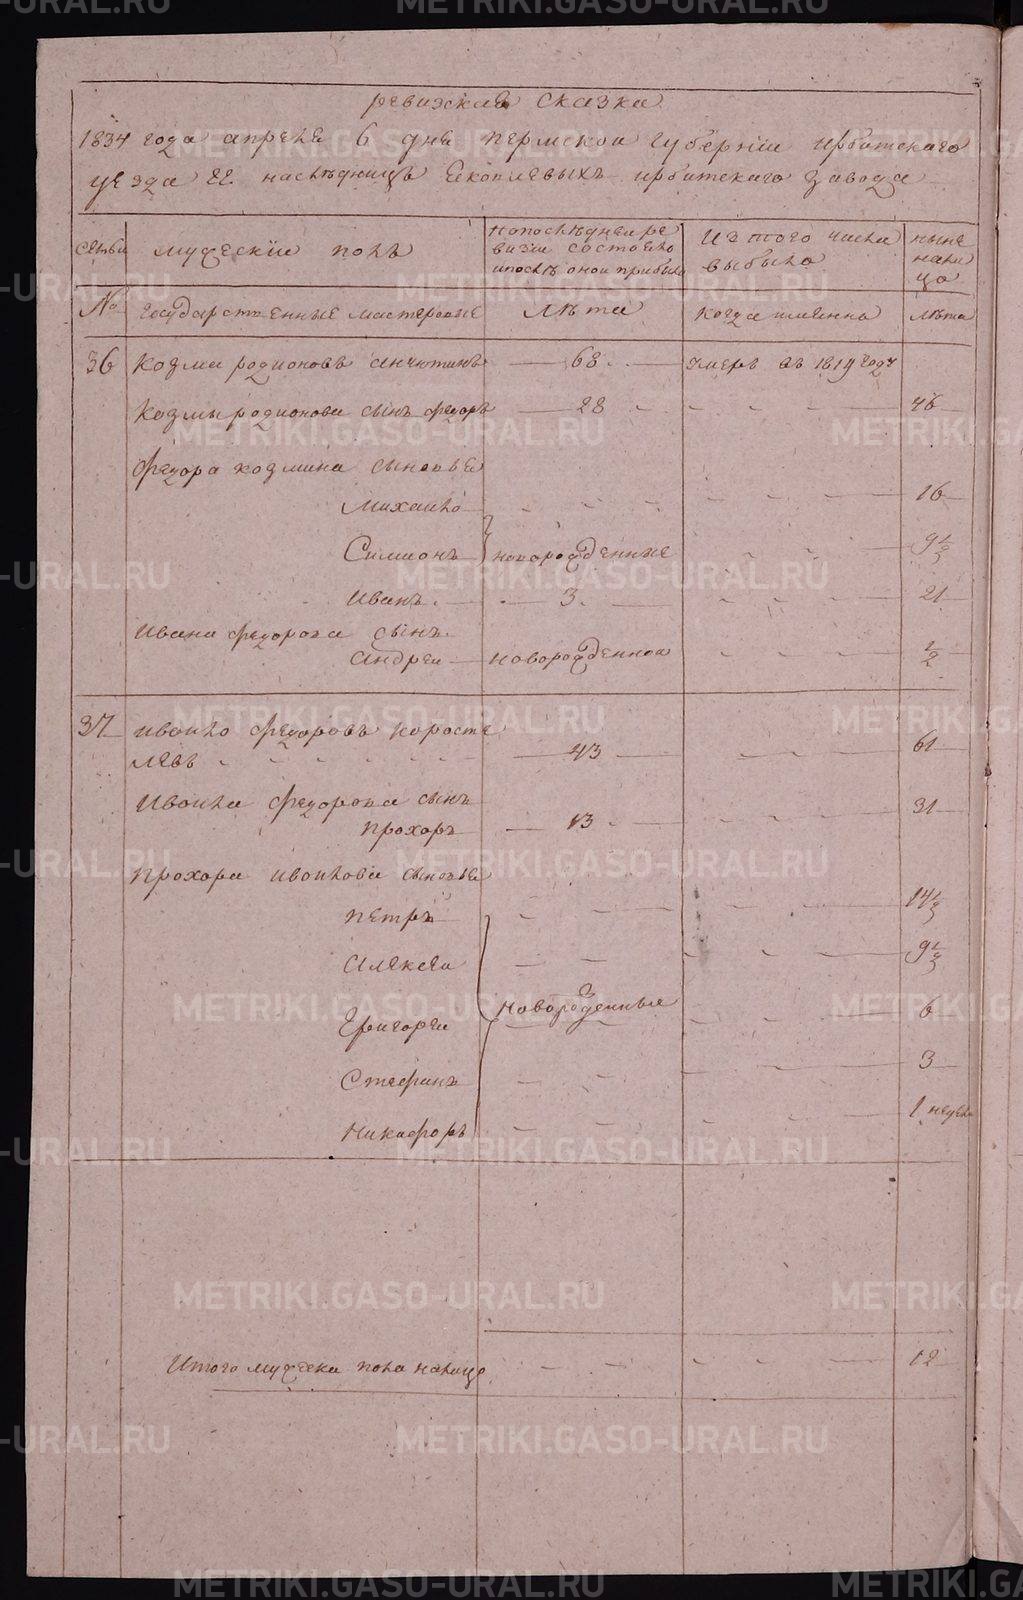 ревизская сказка
1834 года апреля 6 дня пермской губернии ирбитскаго
уезда гг. наслѣдницъ Яковлевыхъ ирбитскаго завода
семьи
мужескiи полъ
Напослѣднеи ре
визiи состояло
ипослѣ онои прибыло
Из того числа
выбыло
ныне
нали
цо
№
Государственные мастеровые
Лѣта
Когда имянно
Лѣта
36 Козма родионовъ анчютинъ 68 умеръ въ 1819 году
Козмы родионова сынъ федоръ 28 46
Федора козмина сыновья
Михаило 16
Симионъ новорожденные 9 1/2
Иванъ 3 21
Ивана федорова сынъ
Андреи новорожденнои 1/2
37 Иваило федоровъ коросте
левъ 43 61
Иваила федорова сынъ
прохоръ 13 31
прохора иваилова сыновья
петръ 14 1/2
Алексеи 9 1/2
Григореи новорожденные 6
Стефанъ 3
Никифоръ 1 недели
Итого мужеска пола налицо 12
METRIKI.GASO-URAL.RU